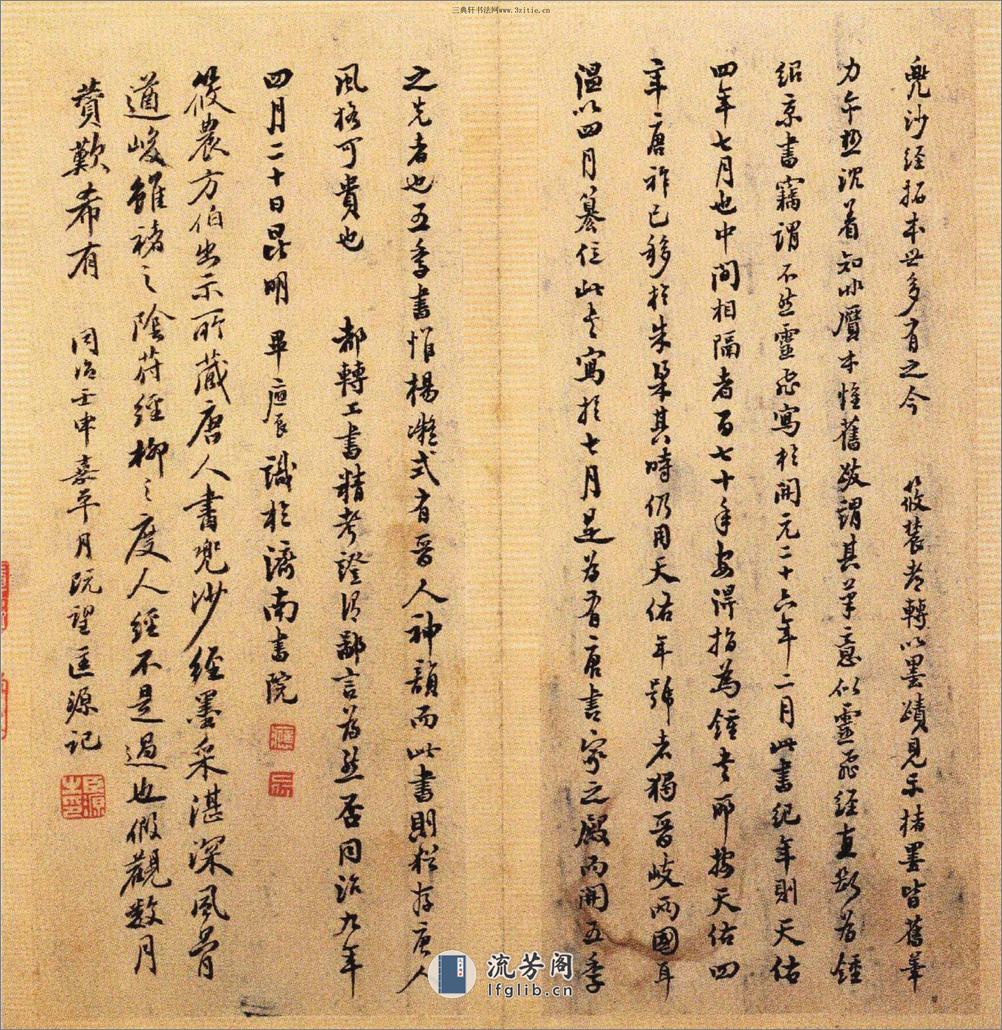 三典轩书法网www.3zitie.cn
兜沙经拓本世多有之今 筱農都轉以墨蹟見示楮墨皆舊筆
力亦沈着知非贋本惟舊敬謂其筆意似靈飛經直斷為鍾
紹京書竊謂不然靈飛寫於開元二十六年二月此書紀年則天佑
四年七月也中間相隔者百七十年安得指為鍾書耶按天佑四
年唐祚已移於朱梁其時仍用天佑年號者獨晋岐兩國耳
温以四月篡位此書寫於七月是為有唐書家之殿而開五季
之先者也五季書惟楊凝式有晋人神韻而此書則猶存唐人
風格可貴也 都轉工書精考證得鄙言為然否同治九年
四月二十日昆明 識於濟南書院
筱農方伯出示所藏唐人書兜沙經墨采湛深風骨
遒峻雖褚之陰符經柳之度人經不是過也假觀數月
贊歎希有 同治壬申嘉平月既望匡源記
流芳阁
lfglib.cn